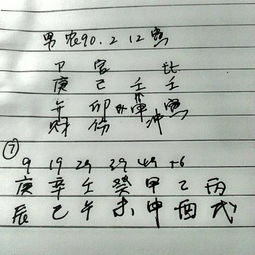 男农90.2.12寅
卩 官 比
庚 己 壬 壬
午 卯 寅
财 伤 冲
⑦
9 19 29 39 49 56
庚 辛 壬 癸 甲 乙 丙
辰 巳 午 未 申 酉 戌